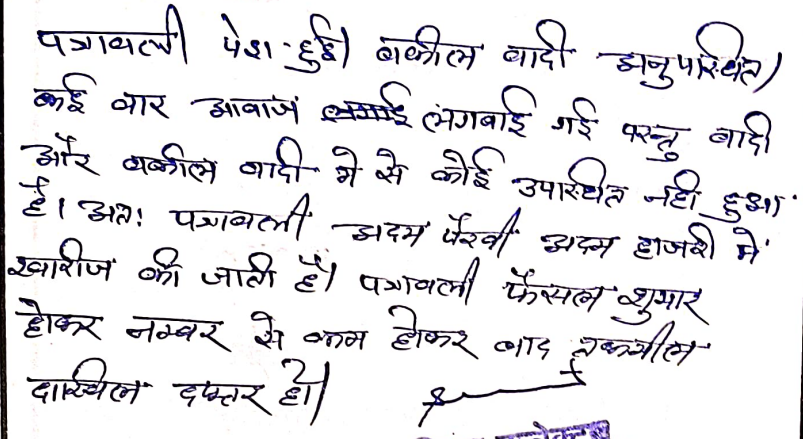 पत्रावली पेश हुई। वकील वादी अनुपस्थित।
कई बार आवाज लगवाई गई परन्तु वादी
और वकील वादी मे से कोई उपस्थित नही हुआ
है। अतः पत्रावली अदम पैरवी अदम हाजरी में
खारीज की जाती है। पत्रावली फैसल शुमार
होकर नम्बर से कम होकर बाद तकमील
दाखिल दफ्तर हो।